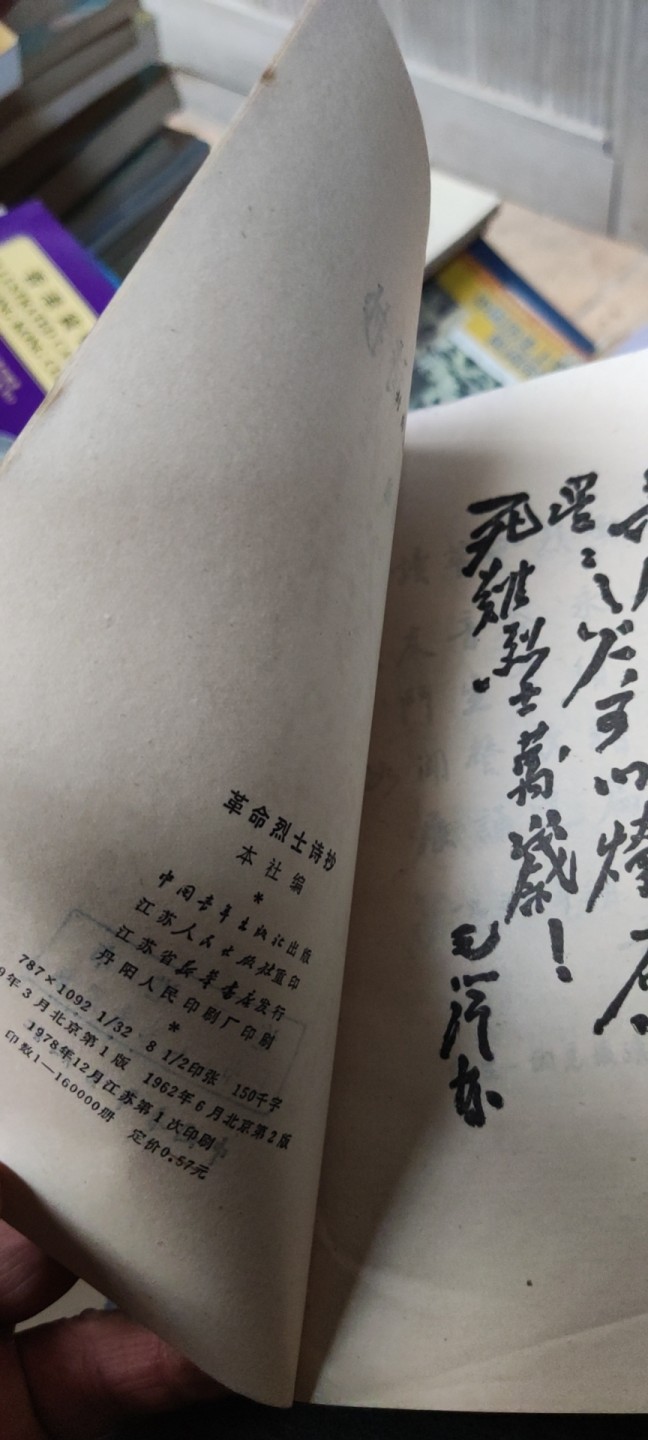 革命烈士诗抄
本社编
*
中国青年出版社出版
江苏人民出版社重印
江苏省新华书店发行
丹阳人民印刷厂印刷
*
787×1092 1/32 8 1/2印张 150千字
9年3月北京第1版 1962年6月北京第2版
1978年12月江苏第1次印刷
印数1—160000册 定价0.57元
星之火可以燎原
死难烈士萬歲！
毛泽东